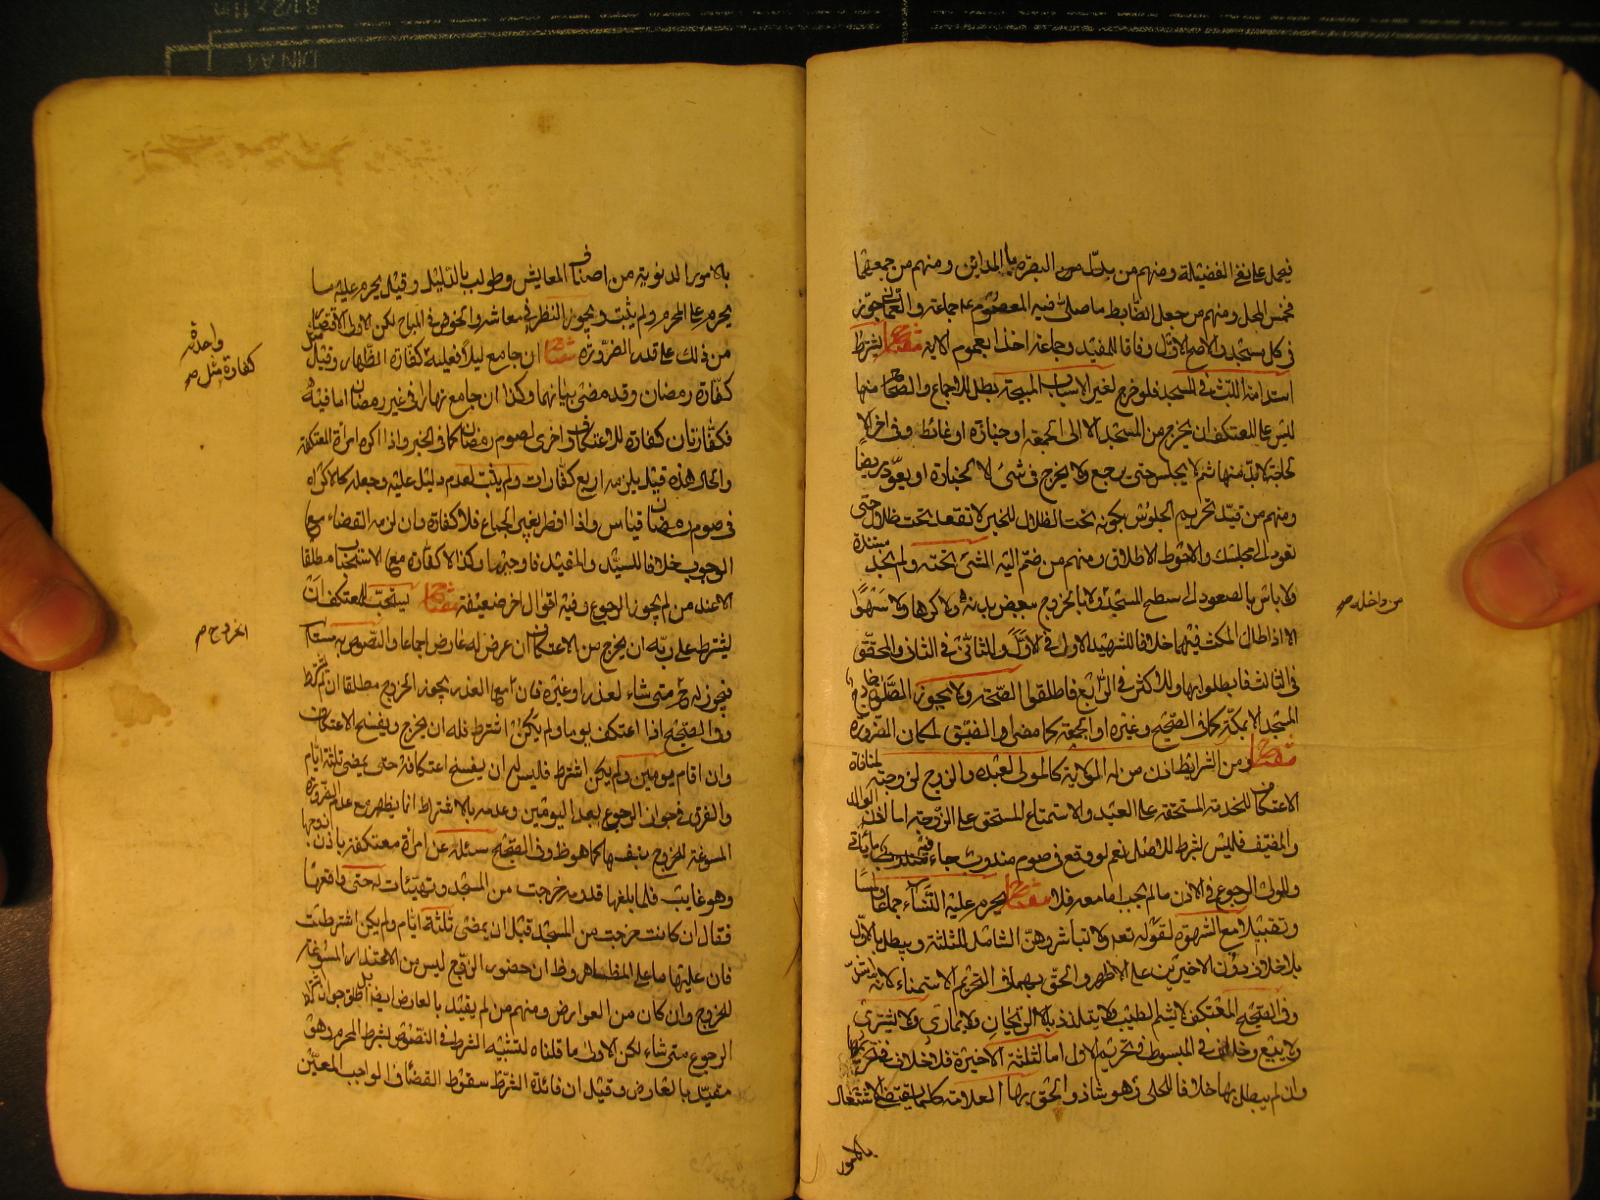 فيحمل على نفي الفضيلة ومنهم من بدّل مسجد البصرة بالمداين ومنهم من جمعهما
فخمس المحل ومنهم من جعل الضابط ما صلى فيه المعصوم عه جماعة والعماني جوّز
في كل مسجد والاصح الاوّل وفاقا للمفيد وجماعة اخذا بعموم الاية مفتاح يشترط
استدامة اللبث في المسجد فلو خرج لغير الاسباب المبيحة بطل للاجماع والصحاح منها
ليس على المعتكف ان يخرج من المسجد الا الى الجمعة او جنازة او غائط وفي اخر الا
لحاجة لا بدّ منها ثم لا يجلس حتى يرجع ولا يخرج في شئ الا لجنازة او يعود مريضا
ومنهم من قيّد تحريم الجلوس بكونه تحت الظلال للخبر لا تقعد تحت ظلال حتى
تعود الى مجلسك والاحوط الاطلاق ومنهم من ضمّ اليه المشي تحته ولم نجد مستنده
ولا باس بالصعود الى سطح المسجد ولا بالخروج ببعض بدنه ولا كرها ولا سهوا
الا اذا طال المكث فيهما خلافا للشهيد الاول في الاوّل وللثاني في الثاني وللمحقق
في الثالث فابطلوا بها وللاكثر في الرابع فاطلقوا الصحة ولا يجوز الصلوة خارج
المسجد الا بمكة كما في الصحيح وغيره او الجمعة كما مضى او لمضيق لمكان الضرورة
مفتاح ومن الشرايط اذن من له الولاية كالمولى لعبده والزوج لزوجته لمنافاة
الاعتكاف للخدمة المستحقة على العبد والاستمتاع المستحق على الزوجة اما اذن الوالد
والمضيف فليس بشرط للاصل نعم لو وقع في صوم مندوب جاء فيه ما ياتي
وللولي الرجوع في الاذن ما لم يجب اما معه فلا مفتاح يحرم عليه النساء جماعا ولمسا
وتقبيلا مع الشهوة لقوله تعه ولا تباشروهنّ الشامل للثلثة ويبطل بالاوّل
بلا خلاف دون الاخيرين على الاظهر والحق بهما في التحريم الاستمناء لانه اشدّ
وفي الصحيح المعتكف لا يشم الطيب ولا يتلذذ بالريحان ولا يماري ولا يشتري
ولا يبيع وخلاف في المبسوط في تحريم الاول اما الثلثة الاخيرة فلا خلاف في تحريمها
وان لم يبطل بها خلافا للحلي وهو شاذ والحق بها العلامة كلما يقتضي الاشتغال
بالامور
من داخله صح
بالامور الدنيوية من اصناف المعايش وطولب بالدليل وقيل يحرم عليه ما
يحرم على المحرم ولم يثبت ويجوز النظر في معاشه والخوض في المباح لكن الاولى الاقتصار
من ذلك على قدر الضرورة مفتاح ان جامع ليلا فعليه كفارة الظهار وقيل مثل
كفارة رمضان وقد مضى بيانهما وكذا ان جامع نهارا في غير رمضان اما فيه
فكفارتان كفارة للاعتكاف واخرى لصوم رمضان كما في الخبر واذا اكره امرأة المعتكفة
والحال هذه قيل يلزمه اربع كفارات ولم يثبت لعدم دليل عليه وجعله كالاكراه
في صوم رمضان قياس واذا افطر بغير الجماع فلا كفارة وان لزمه القضاء مع
الوجوب خلافا للسيد والمفيد فاوجبها وكذا لا كفارة مع الاستحباب مطلقا
الا عند من لم يجوز الرجوع وفيه اقوال اخر ضعيفة مفتاح يستحب للمعتكف ان
يشترط على ربّه ان يخرج من الاعتكاف ان عرض له عارض اجماعا والنصوص به مستفيضة
فيجوز له ح متى شاء لعذر او غيره فان مع العذر يجوز الخروج مطلقا ان لم يشترط
وفي الصحيح اذا اعتكف يوما ولم يكن اشترط فله ان يخرج ويفسخ الاعتكاف
وان اقام يومين ولم يكن اشترط فليس له ان يفسخ اعتكافه حتى يمضي ثلثة ايام
والفرق في جواز الرجوع بعد اليومين وعدمه بالاشتراط انما يظهر مع عدم الضرورة
المسوغة للخروج بنفسها كما هو ظ وفي الصحيح سئله عن امرأة معتكفة باذن زوجها
وهو غايب فلما بلغها قدومه خرجت من المسجد وتهيئات له حتى واقعها
فقال ان كانت خرجت من المسجد قبل ان يمضي ثلثة ايام ولم يكن اشترطت
فان عليها ما على المظاهر وظ ان حضور الزوج ليس من الاعذار المسوغة
للخروج وان كان من العوارض ومنهم من لم يقيد بالعارض ايضا بل اطلق جواز اشتراط
الرجوع متى شاء لكن الاولى ما قلناه لتشبيه الشرط في النصوص بشرط المحرم وهو
مقيّد بالعارض وقيل ان فائدة الشرط سقوط القضاء في الواجب المعيّن
واحدة
كفارة مثل صح
الخروج صح